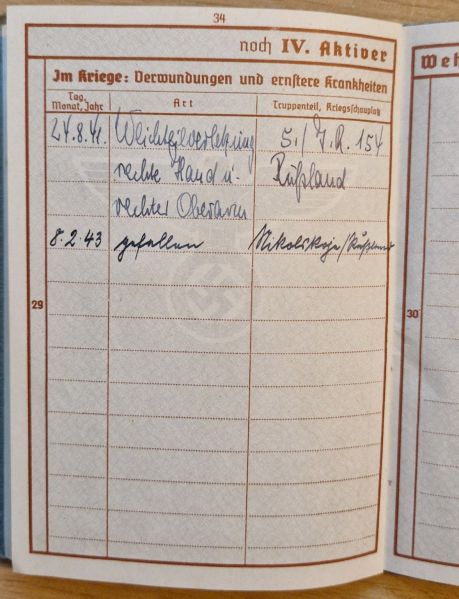 34
noch IV. Aktiver
Im Kriege: Verwundungen und ernstere Krankheiten
Tag, Monat, Jahr Art Truppenteil, Kriegsschauplatz
24.8.41. Weichteilverletzung 5./J.R. 154
rechte Hand u. Rußland
rechter Oberarm
8.2.43 gefallen Nikolskoje/Rußland
29
30
Weh